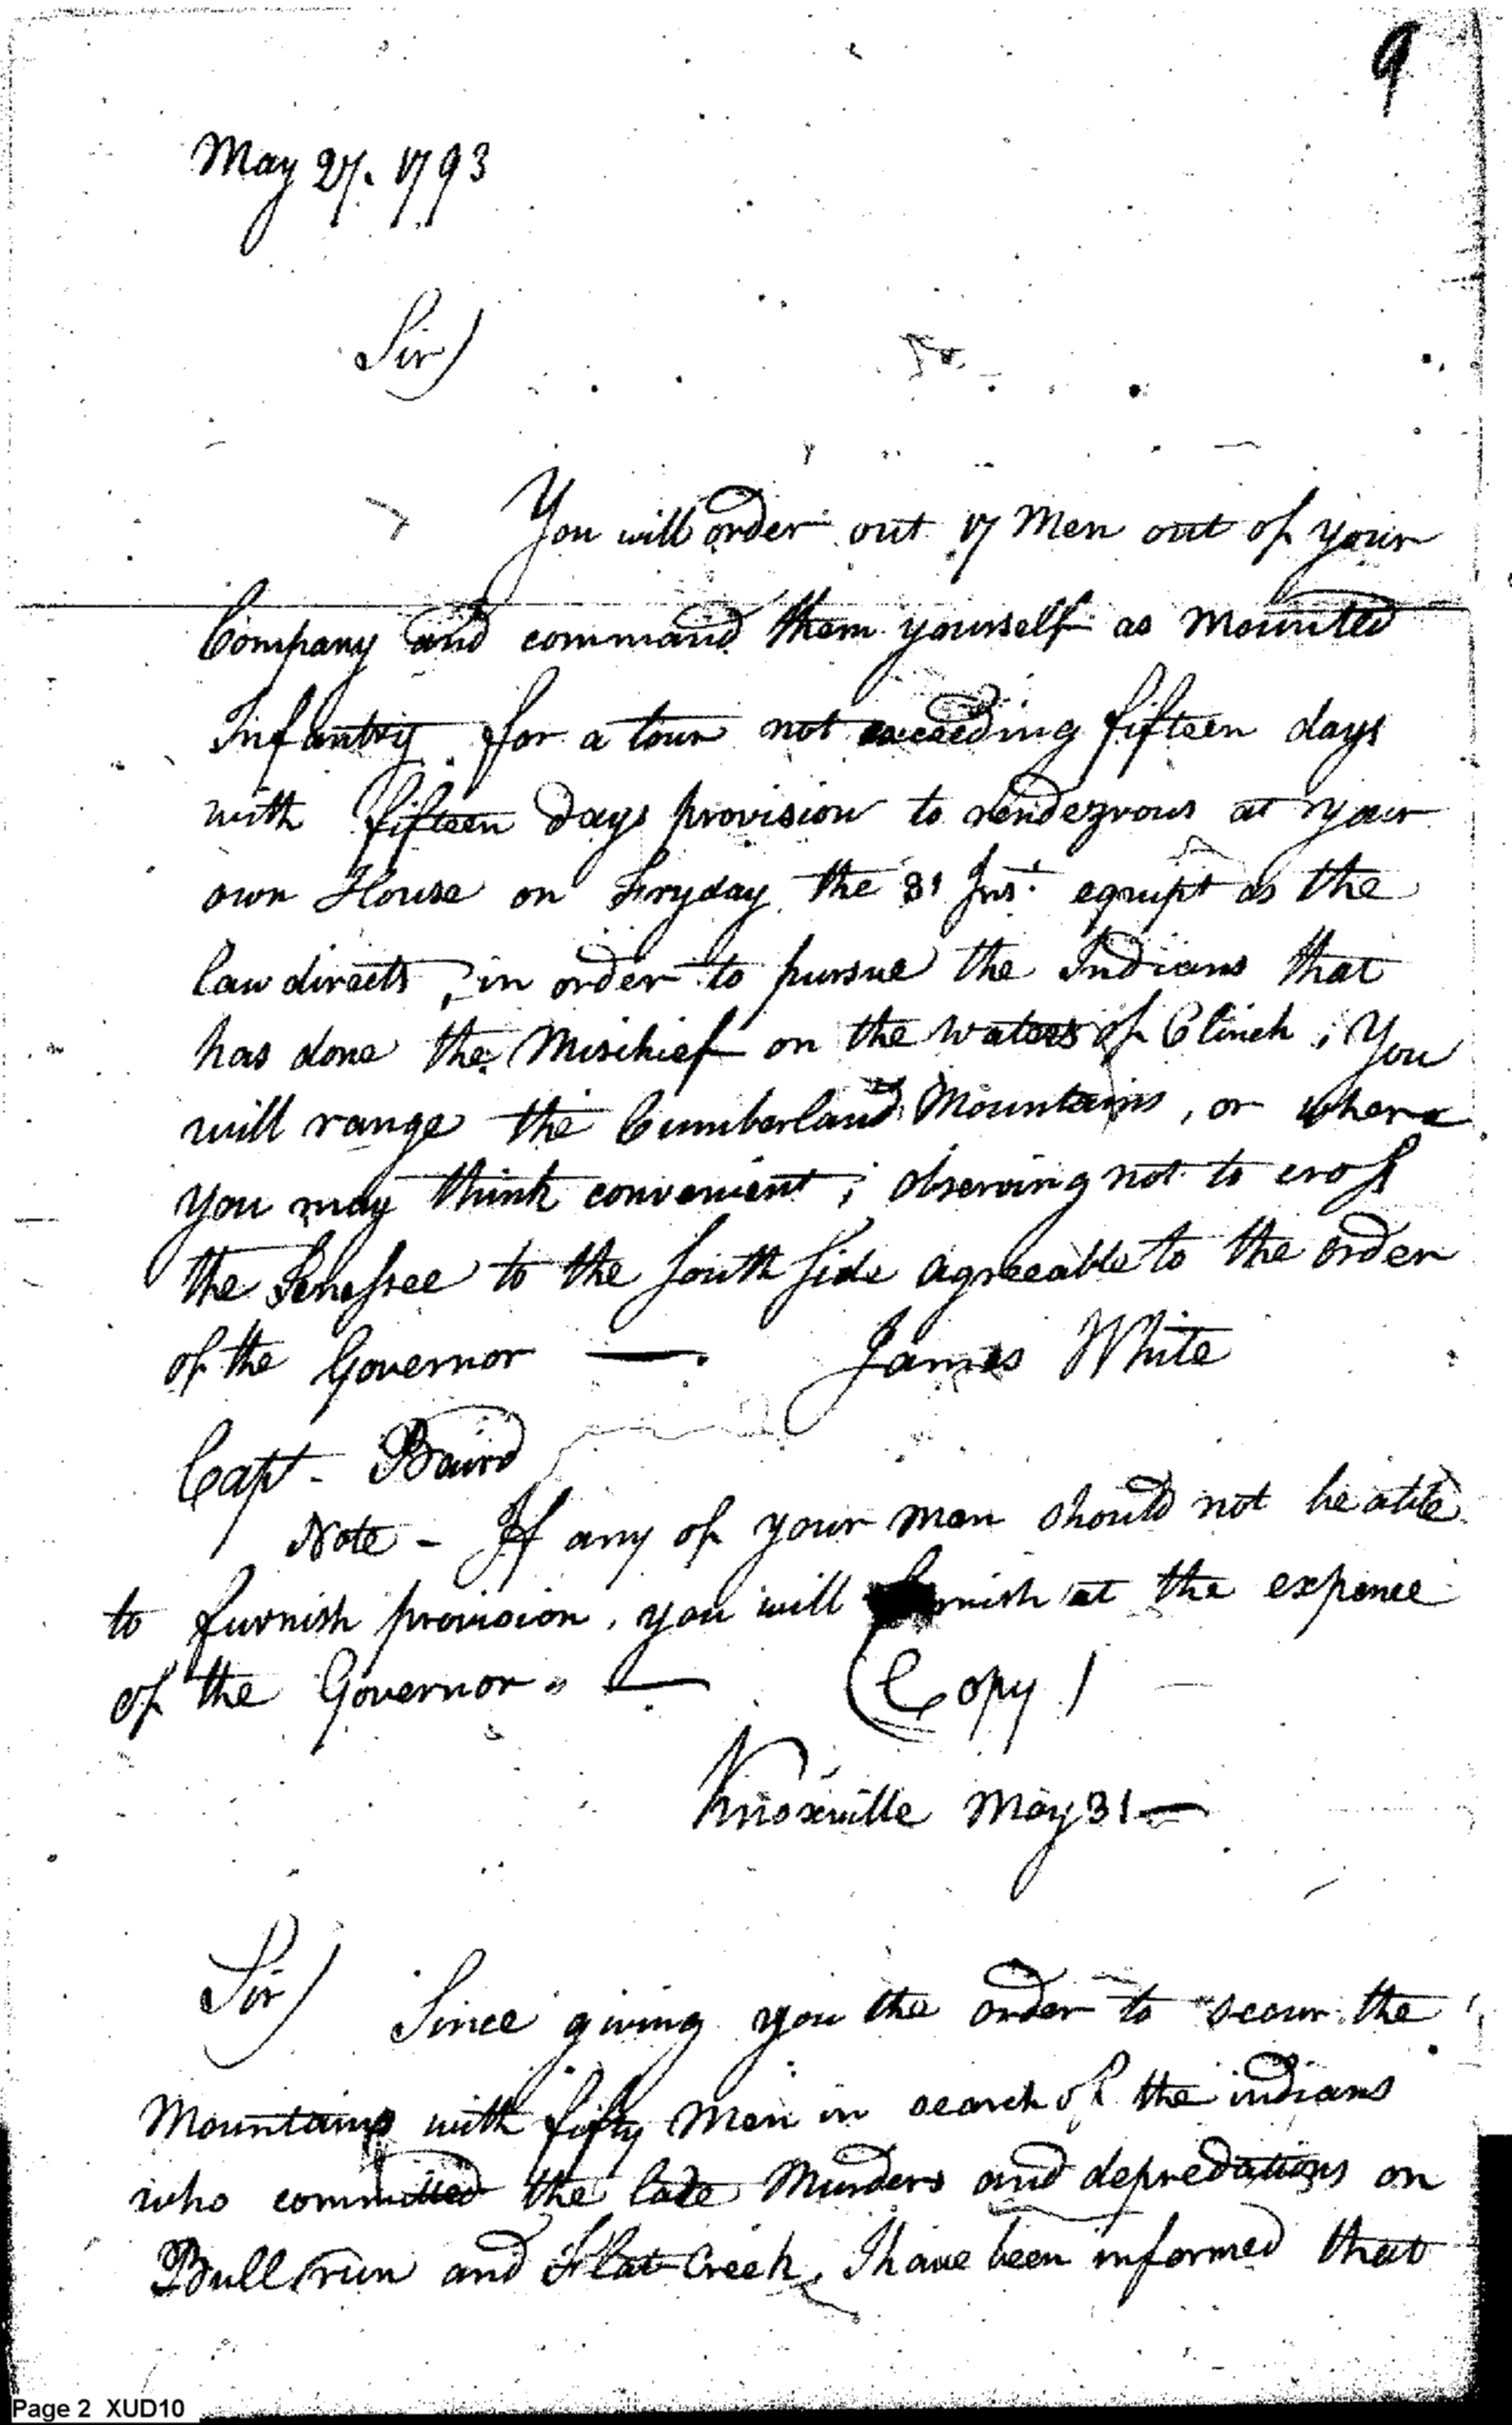 9
May 27. 1793
Sir)
You will order out 17 Men out of your
Company and command them yourself as Mounted
Infantry for a tour not exceeding fifteen days
with fifteen days provision to rendezvous at your
own House on Fryday the 31 Inst. equipt as the
law directs, in order to pursue the Indians that
has done the Mischief on the waters of Clinch, You
will range the Cumberland Mountains, or where
you may think convenient; observing not to cross
the Tenessee to the South Side agreeable to the order
of the Governor —. James White
Capt - Baird
Note - If any of your men should not be able
to furnish provision, you will furnish at the expence
of the Governor. — (Copy)
Knoxville May 31 —
Sir) Since giving you the order to scour the
Mountains with fifty Men in search of the indians
who committed the late Murders and depredations on
Bull run and Flat Creek, I have been informed that
Page 2 XUD10